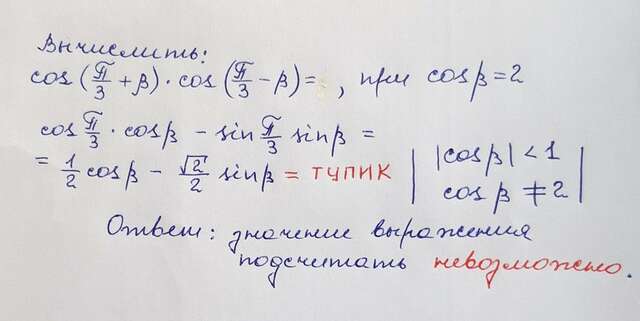 Вычислить:
cos(π/3 + β) · cos(π/3 - β) = , при cos β = 2
cos π/3 · cos β - sin π/3 sin β =
= 1/2 cos β - √2/2 sin β = ТУПИК | |cos β| < 1
cos β ≠ 2 |
Ответ: значение выражения
подсчитать невозможно.